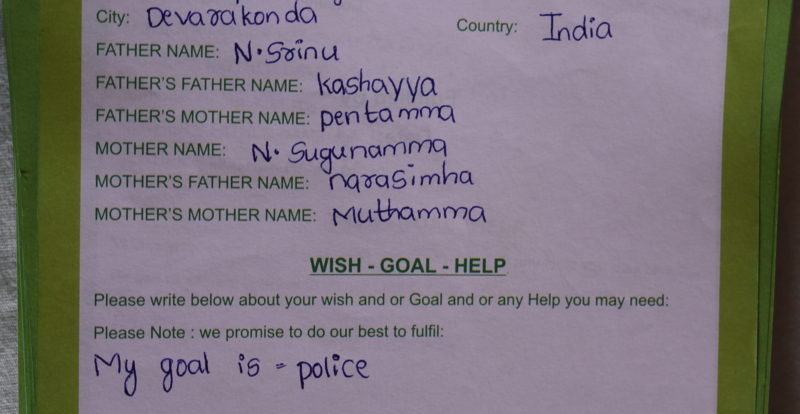 City: Devarakonda Country: India
FATHER NAME: N. Srinu
FATHER'S FATHER NAME: kashayya
FATHER'S MOTHER NAME: pentamma
MOTHER NAME: N. Sugunamma
MOTHER'S FATHER NAME: narasimha
MOTHER'S MOTHER NAME: Muthamma
WISH - GOAL - HELP
Please write below about your wish and or Goal and or any Help you may need:
Please Note : we promise to do our best to fulfil:
My goal is = police